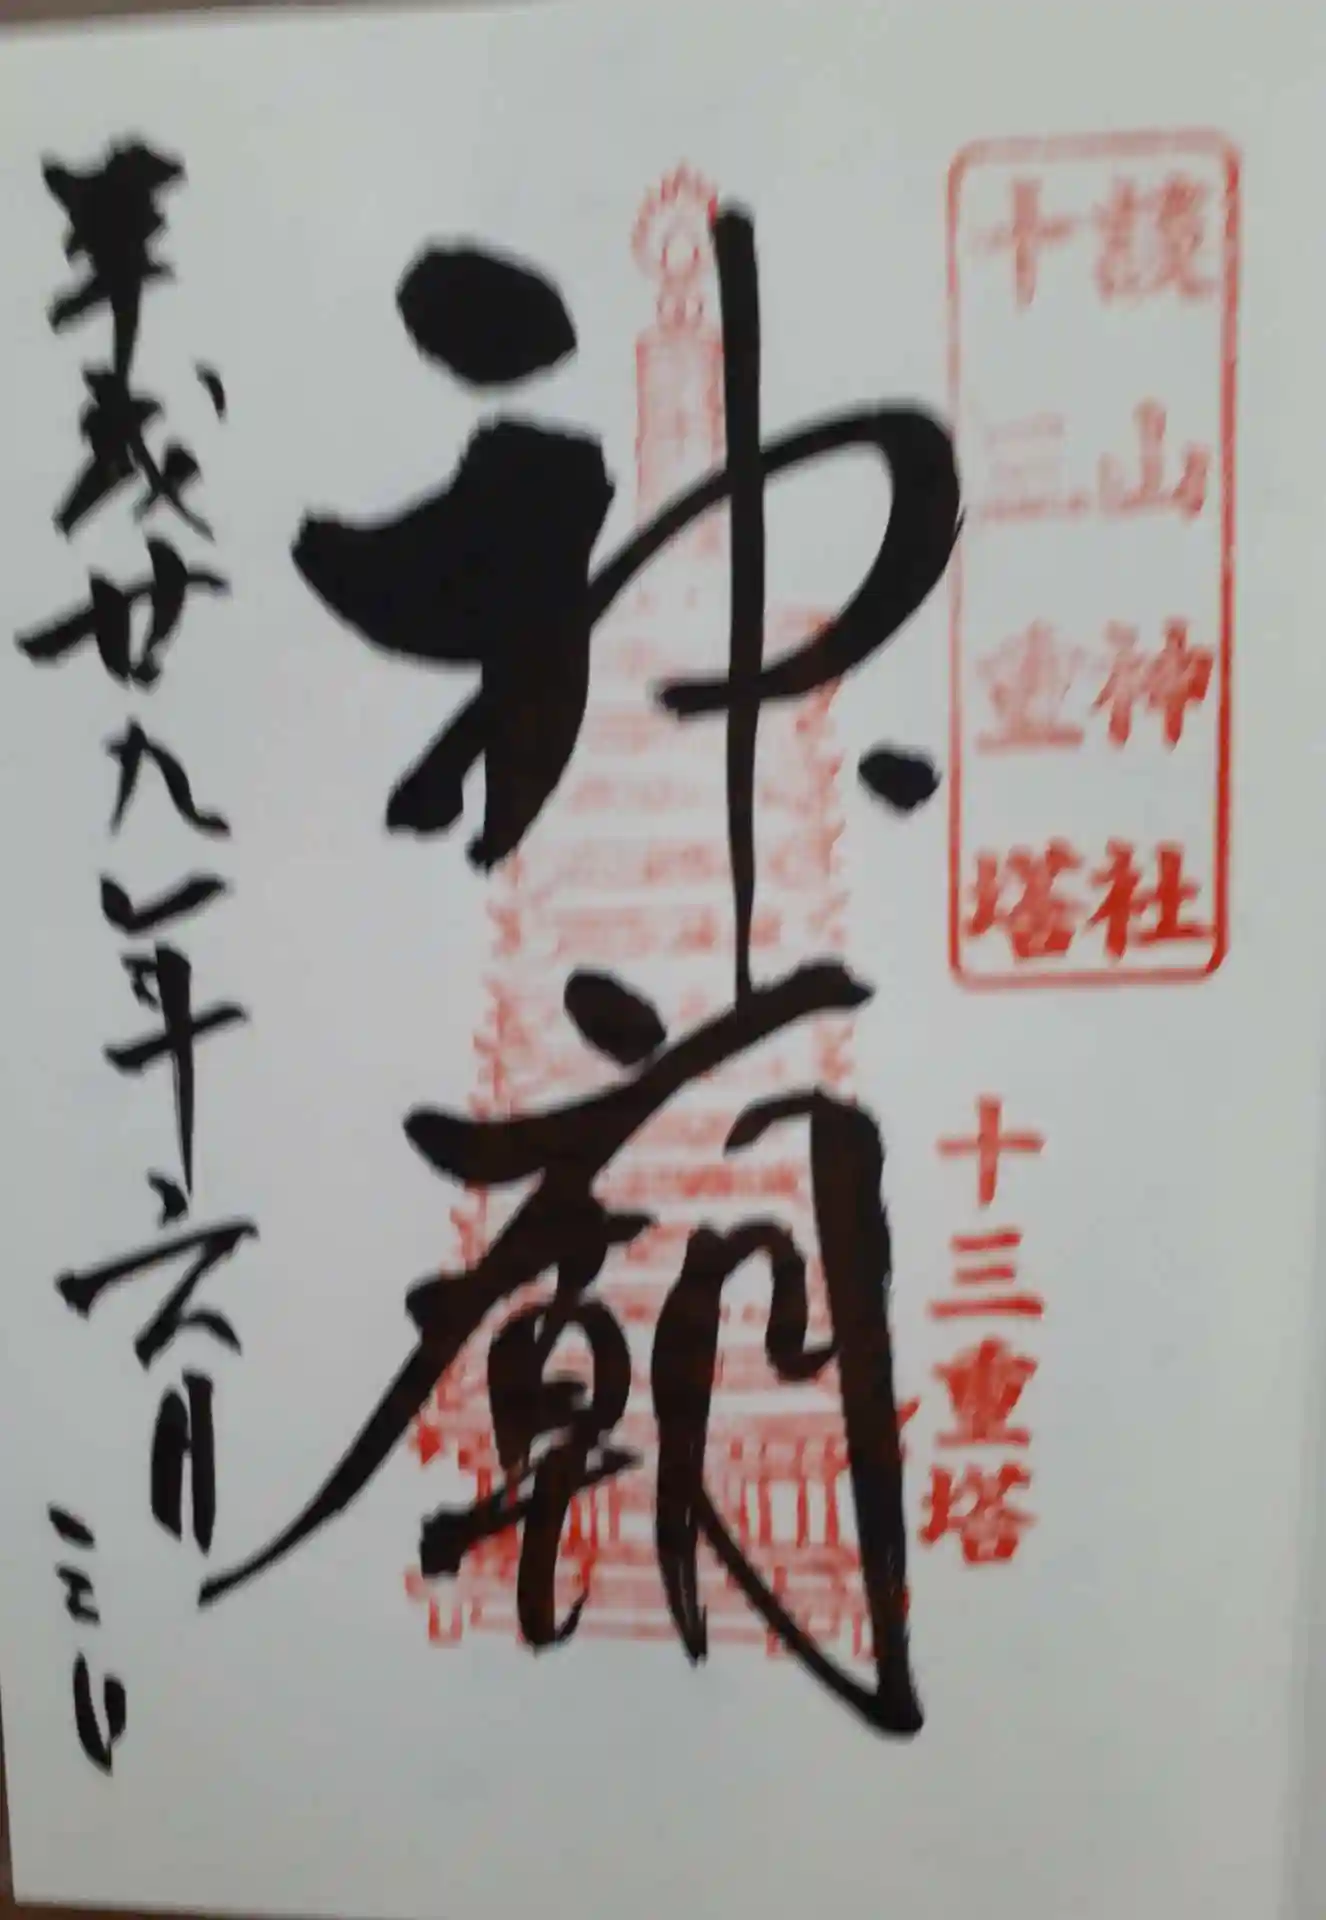 談山神社
十三重塔
十三重塔
神廟
平成廿九年六月
三日